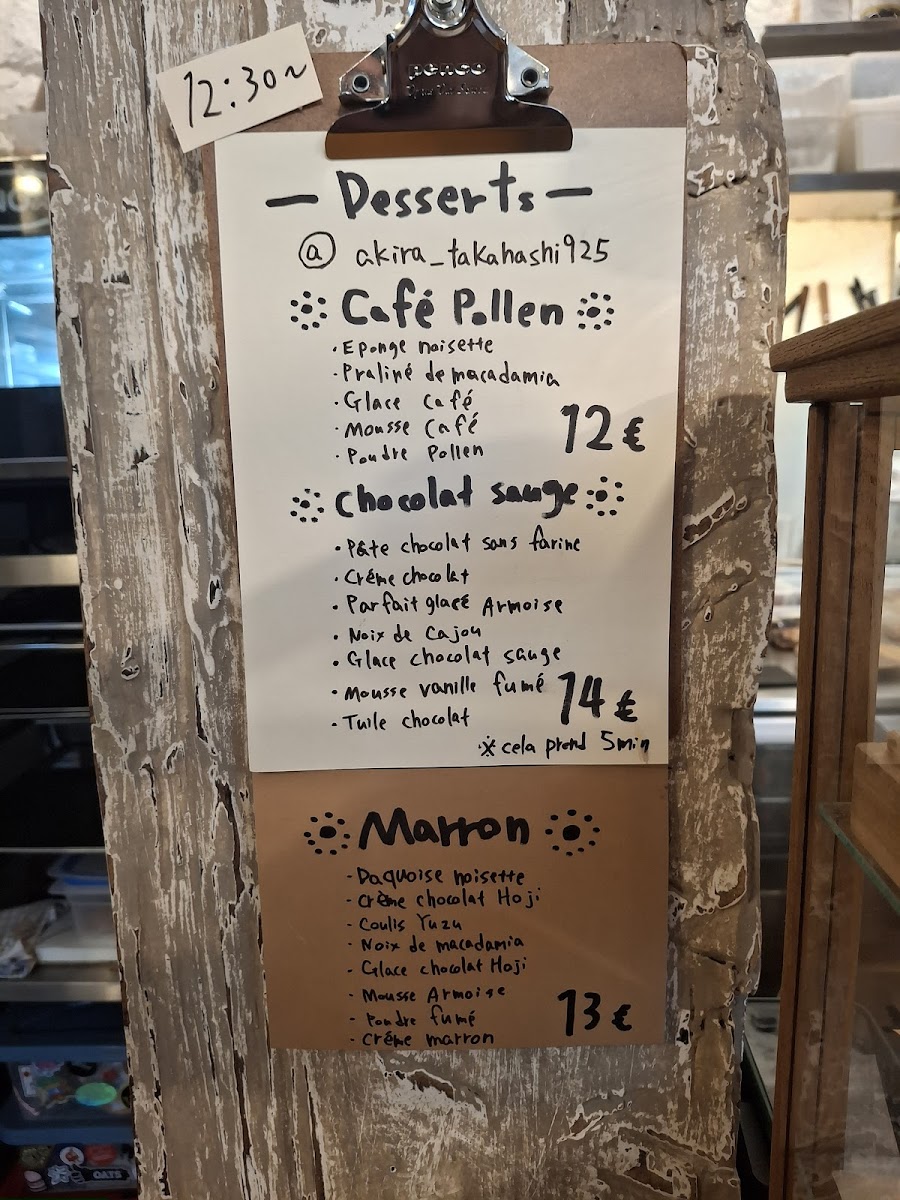 12:30~
penco
— Desserts —
@ akira_takahashi925
Café Pollen
· Eponge noisette
· Praliné de macadamia
· Glace Café
· Mousse Café
· Poudre Pollen
12€
chocolat sauge
· Pâte chocolat sans farine
· Créme chocolat
· Parfait glacé Armoise
· Noix de Cajou
· Glace chocolat sauge
· Mousse vanille fumé
· Tuile chocolat
14€
※ cela prend 5min
Marron
- Daquoise noisette
- Crème chocolat Hoji
- Coulis Yuzu
- Noix de macadamia
- Glace chocolat Hoji
- Mousse Armoise
- Poudre fumé
- Crème marron
13€
OATS